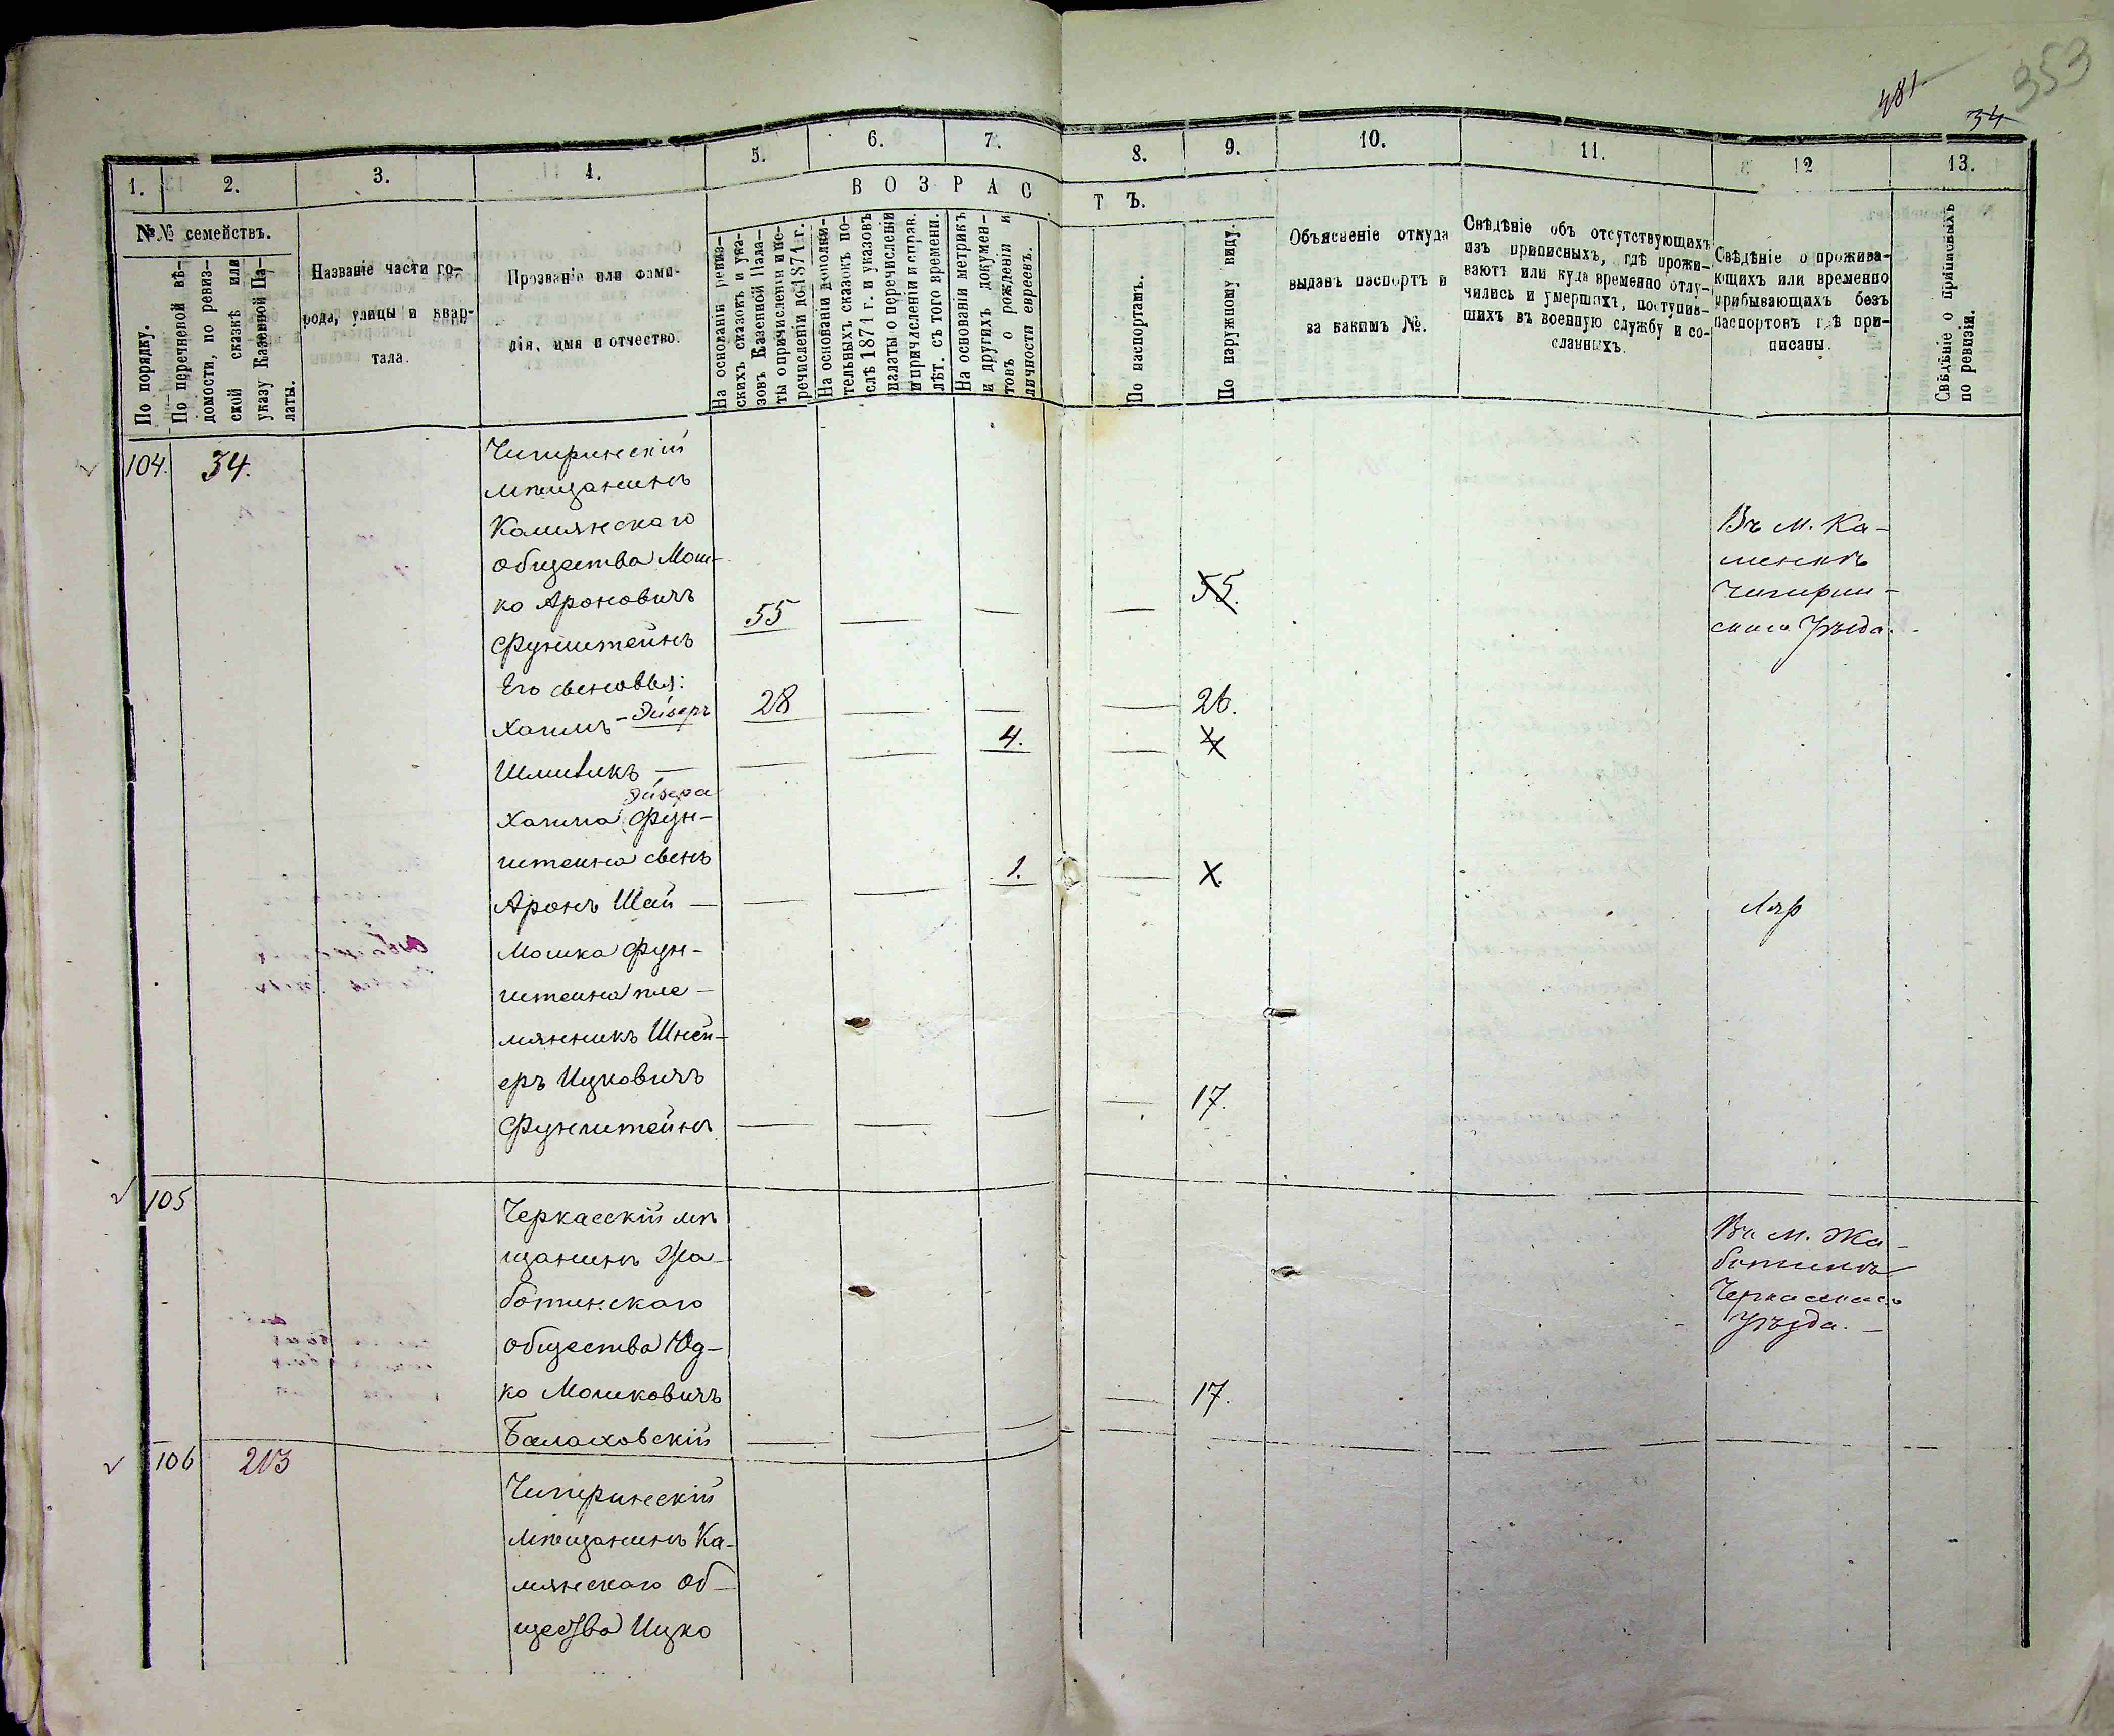 353
481.
34
1.
2.
3.
4.
5.
6.
7.
8.
9.
10.
11.
12
13.
№№ семействъ.
В О З Р А С Т Ъ.
По порядку.
По перечневой вѣ-
домости, по ревиз-
ской сказкѣ или
указу Казенной Па-
латы.
Названіе части го-
рода, улицы и квар-
тала.
Прозваніе или фами-
лія, имя и отчество.
На основаніи ревиз-
скихъ сказокъ и ука-
зовъ Казенной Пала-
ты о причисленіи и пе-
речисленіи до 1874 г.
На основаніи дополни-
тельныхъ сказокъ по-
слѣ 1874 г. и указовъ
палаты о перечисленіи
и причисленіи и справ.
лѣт. съ того времени.
На основаніи метрикъ
и другихъ докумен-
товъ о рожденіи и
личности евреевъ.
По паспортамъ.
По наружному виду.
Объясненіе откуда
выданъ паспортъ и
за какимъ №.
Свѣдѣніе объ отсутствующихъ
изъ приписныхъ, гдѣ прожи-
ваютъ или куда временно отлу-
чились и умершихъ, поступив-
шихъ въ военную службу и со-
сланныхъ.
Свѣдѣніе о прожива-
ющихъ или временно
прибывающихъ безъ
паспортовъ гдѣ при-
писаны.
Свѣдѣніе о приписныхъ
по ревизіи.
104. 34.
Чигиринскій
мѣщанинъ
Камянскаго
общества Мош-
ко Ароновичъ
Фунштейнъ 55 55.
Въ м. Ка-
менкѣ
Чигирин-
скаго Уѣзда.
Его сыновья:
Хаимъ-Эйзеръ 28 26.
Шмиликъ 4. 4
Эйзера
Хаима Фун-
штеина сынъ
Аронъ Шай 1.
Мошка Фун-
штеина пле-
мянникъ Шней-
еръ Ицковичъ
Фунштейнъ 17.
105
Черкасскій мѣ
щанинъ Жа-
ботинскаго
общества Юд-
ко Мошковичъ
Балаховскій 17.
Въ м. Жа-
ботинѣ
Черкасскаго
Уѣзда.
106 213
Чигиринскій
Мѣщанинъ Ка-
мянскаго об-
щества Ицко